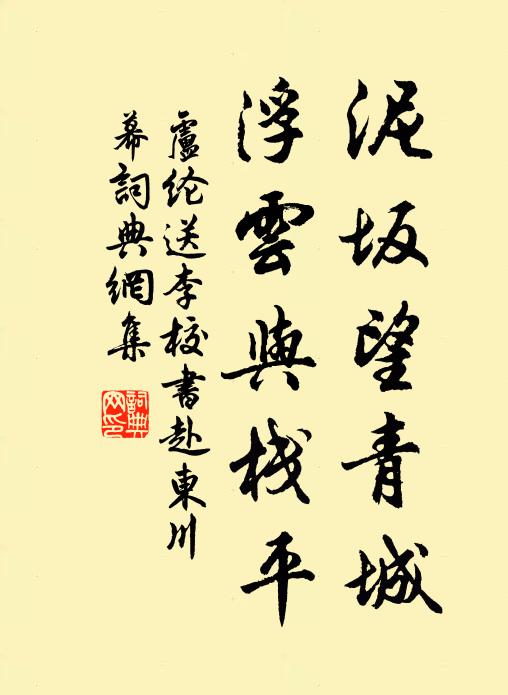 泥坂望青城
浮雲與栈平
盧纶送李校書赴東川
幕詞典網集
詞典
网印